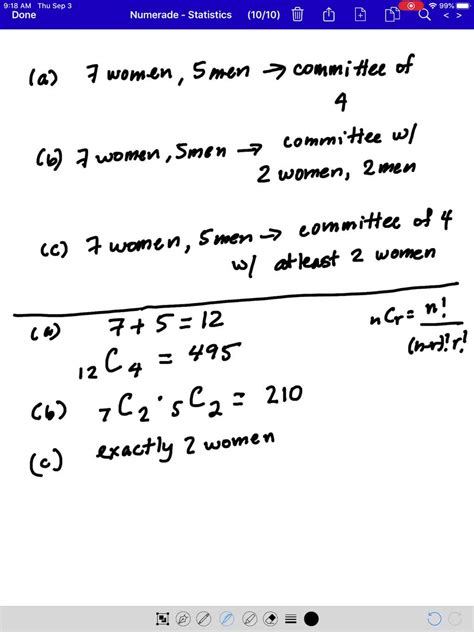 9:18 AM Thu Sep 3
99%
Done
Numerade - Statistics (10/10)
(a) 7 women, 5 men → committee of
4
(b) 7 women, 5men → committee w/
2 women, 2 men
(c) 7 women, 5 men → committee of 4
w/ atleast 2 women
(a) 7 + 5 = 12
nCr = n!
(n-r)! r!
12C4 = 495
(b) 7C2 · 5C2 = 210
(c) exactly 2 women